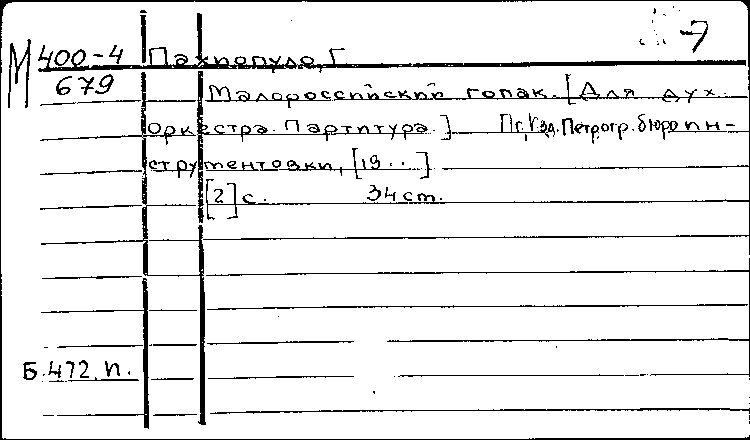 М 400-4 Пахпопуло, Г
679
Малороссийский гопак. [Для дух.
оркестра. Партитура.] Пг, Изд. Петрогр. бюро ин-
струментовки, [19..]
[2] с. 34 ст.
Б.472.п.